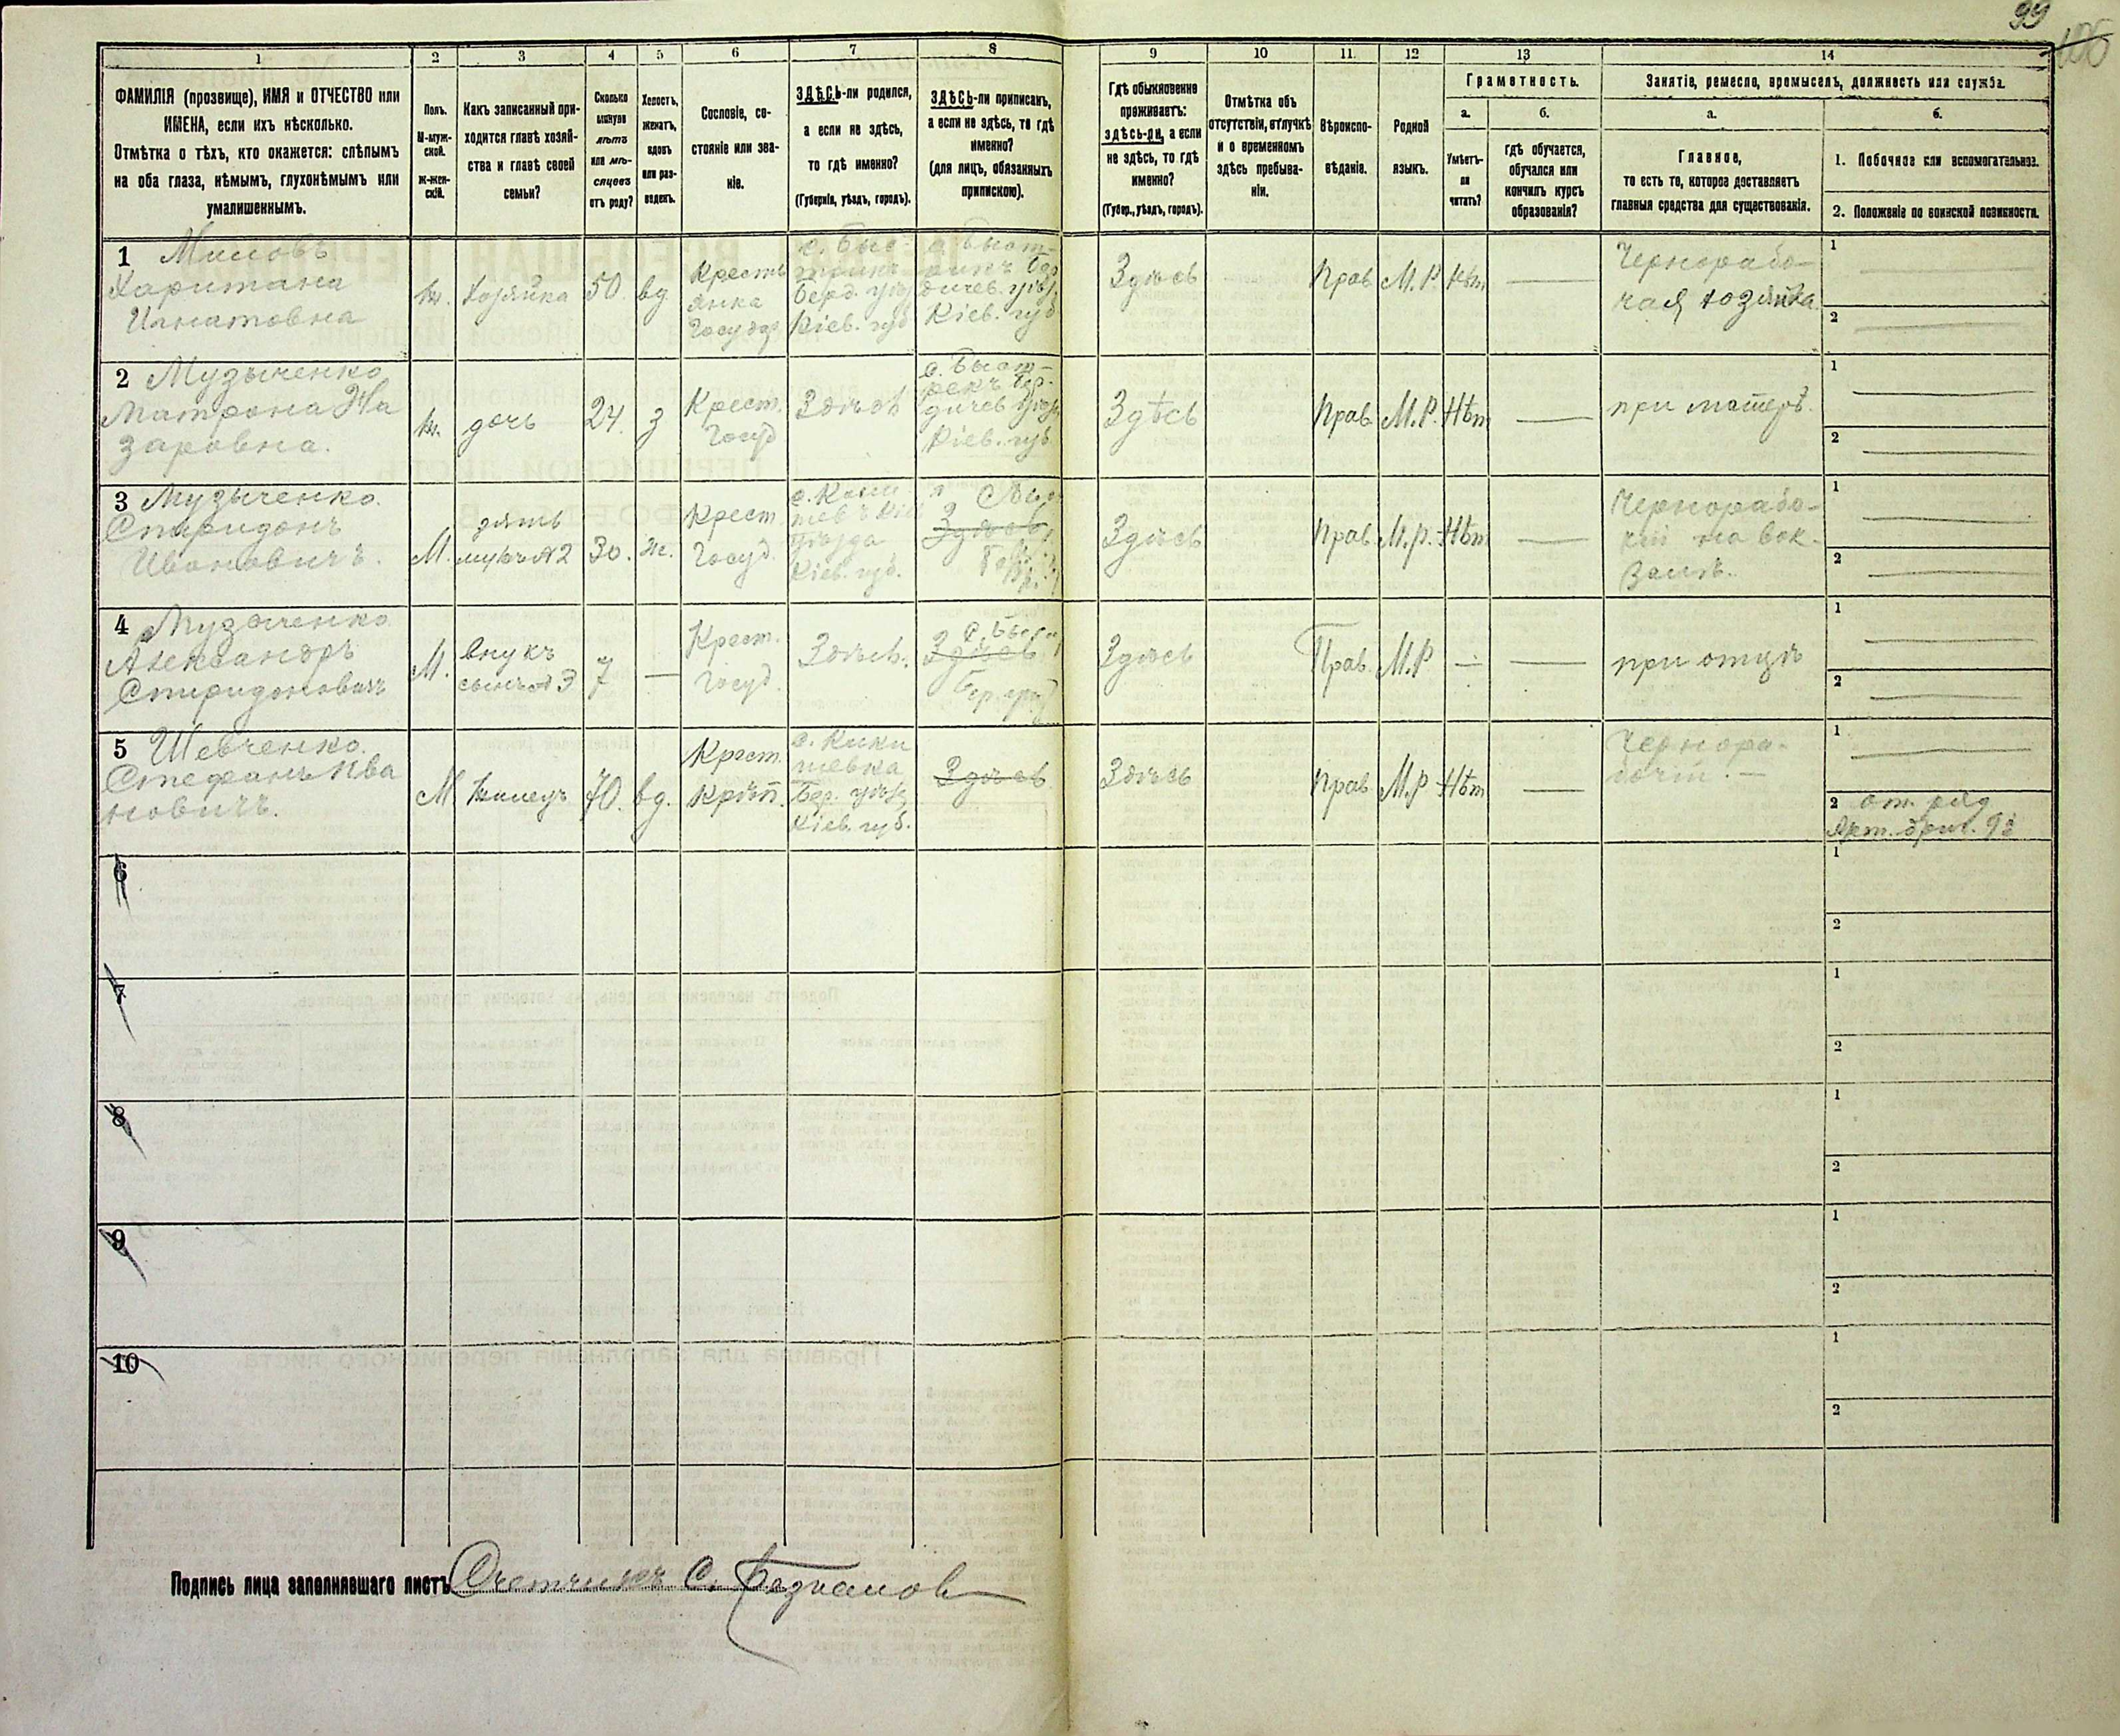 99
100
1
2
3
4
5
6
7
8
9
10
11
12
13
14
ФАМИЛІЯ (прозвище), ИМЯ и ОТЧЕСТВО или
ИМЕНА, если ихъ нѣсколько.
Отмѣтка о тѣхъ, кто окажется: слѣпымъ
на оба глаза, нѣмымъ, глухонѣмымъ или
умалишеннымъ.
Полъ.
М-муж-
ской.
Ж-жен-
скій.
Какъ записанный при-
ходится главѣ хозяй-
ства и главѣ своей
семьи?
Сколько
минуло
лѣтъ
или мѣ-
сяцевъ
отъ роду?
Холостъ,
женатъ,
вдовъ
или раз-
веденъ.
Сословіе, со-
стояніе или зва-
ніе.
ЗДѢСЬ-ли родился,
а если не здѣсь,
то гдѣ именно?
(Губернія, уѣздъ, городъ).
ЗДѢСЬ-ли приписанъ,
а если не здѣсь, то гдѣ
именно?
(для лицъ, обязанныхъ
припискою).
Гдѣ обыкновенно
проживаетъ:
здѣсь-ли, а если
не здѣсь, то гдѣ
именно?
(Губер., уѣздъ, городъ).
Отмѣтка объ
отсутствіи, отлучкѣ
и о временномъ
здѣсь пребыва-
ніи.
Вѣроиспо-
вѣданіе.
Родной
языкъ.
Грамотность.
а.
Умѣетъ-
ли
читать?
б.
гдѣ обучается,
обучался или
кончилъ курсъ
образованія?
Занятіе, ремесло, промыселъ, должность или служба.
а.
Главное,
то есть то, которое доставляетъ
главныя средства для существованія.
б.
1. Побочное или вспомогательное.
2. Положеніе по воинской повинности.
1
Харитана
Игнатовна
ж.
Хозяйка
50
вд
Кресть
янка
Государ
с. Быс
Берд. уѣз
Кіев. губ
с. Быст-
рикъ Бер
дичев. уѣз.
Кіев. губ
Здѣсь
Прав
М.Р
Нѣт
Чернорабо-
чая хозяйка
1
2
2 Музыченко
Матрона На
заровна.
ж.
дочь
24.
з
Крест.
Госуд
Здѣсь
с. Быст-
рекъ Бер-
дичев уѣз
Кіев. губ.
Здѣсь
Прав
М.Р.
Нѣт
при матерѣ.
1
2
3 Музыченко
Спиридонъ
Ивановичъ.
М.
зять
мужъ №2
30.
ж.
Крест
Госуд.
уѣзда
Кіев. губ.
Здѣсь
Здѣсь
Прав
М.р.
Нѣт
Чернорабо-
чій на вок-
залѣ.
1
2
4 Музыченко
Александръ
Спиридоновичъ
М.
внукъ
сынъ №3
7
Крест.
Госуд.
Здѣсь.
Здѣсь
Бер. уѣз
Здѣсь
Прав.
М.Р
при отцѣ
1
2
5 Шевченко.
Стефанъ Ива
новичъ.
М
Жилецъ
70.
вд.
Крест.
Крѣп.
с. Кики
шевка
Бер. уѣз
Кіев. губ.
Здѣсь
Здѣсь
Прав
М.Р
Нѣт
Чернора-
бочій.
1
2 от. ряд
Арт. бриг.
6
1
2
7
1
2
8
1
2
9
1
2
10
1
2
Подпись лица заполнявшаго листъ Счетчикъ С.